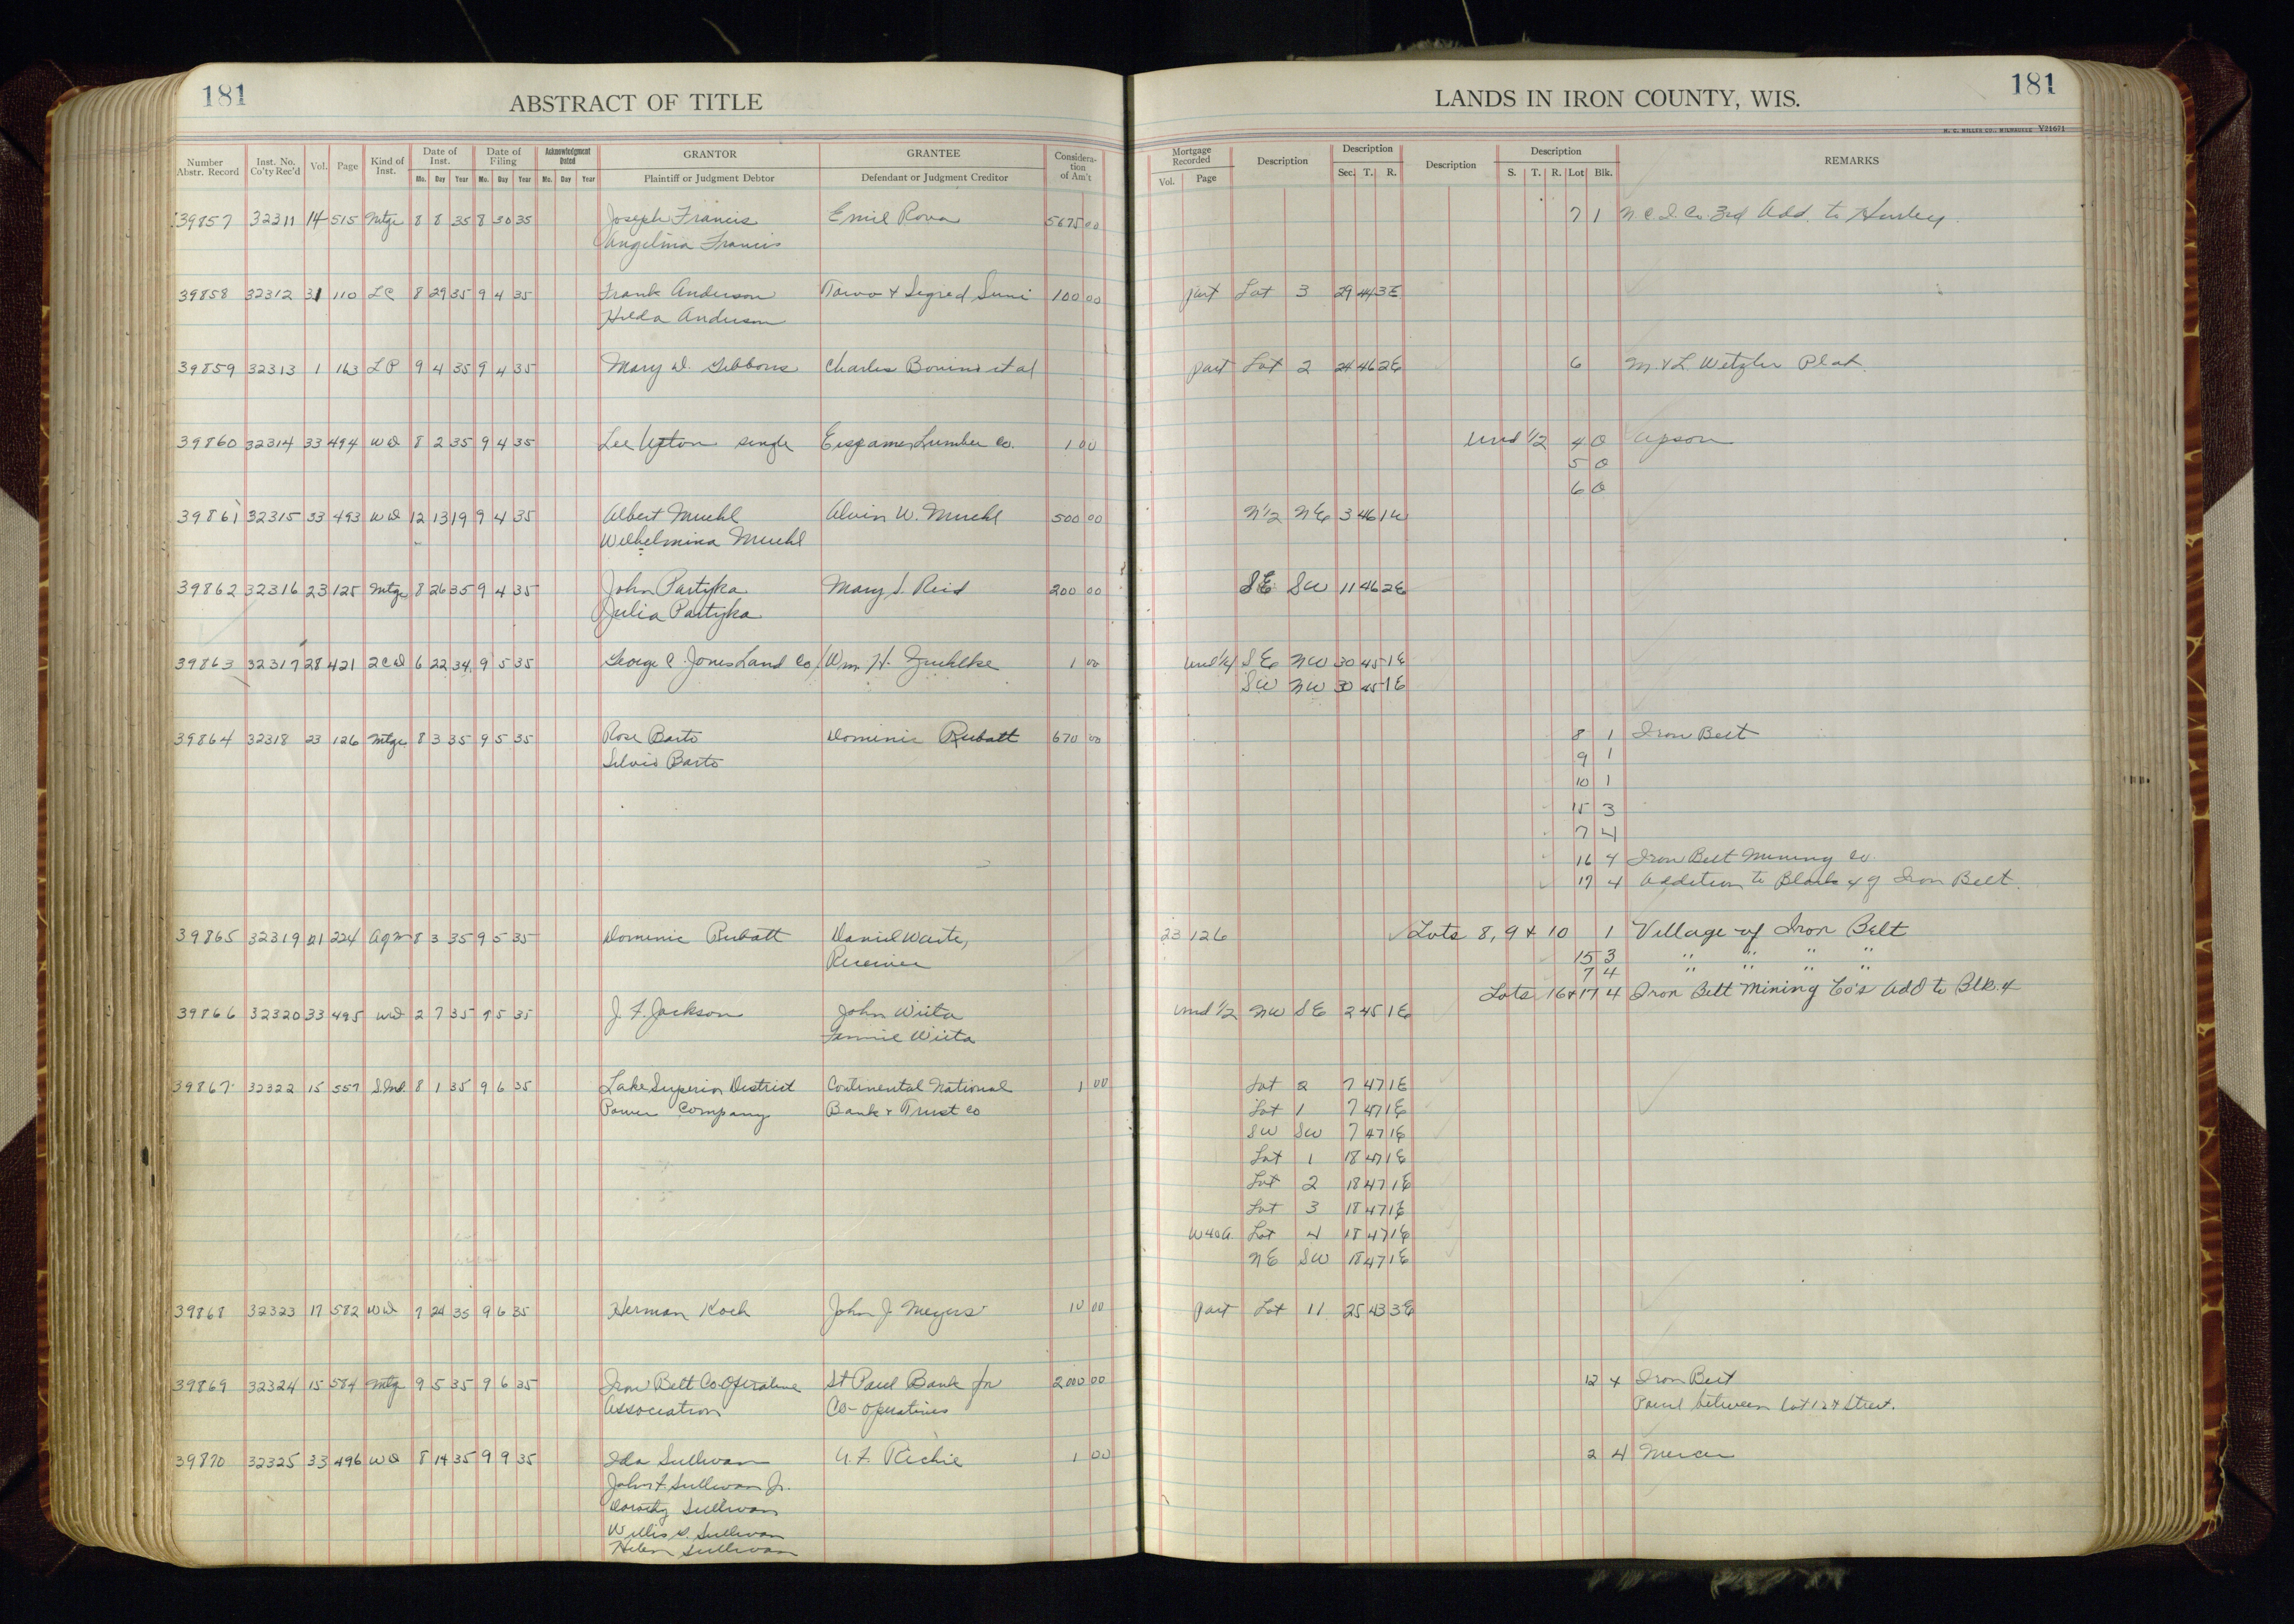 181
ABSTRACT OF TITLE
Number Abstr. Record
Inst. No. Co'ty Rec'd
Vol.
Page
Kind of Inst.
Date of Inst.
Mo. Day Year
Date of Filing
Mo. Day Year
Acknowledgment Dated
Mo. Day Year
GRANTOR
Plaintiff or Judgment Debtor
GRANTEE
Defendant or Judgment Creditor
Considera-tion of Am't
39857 32311 14 515 Mtge 8 8 35 8 30 35 Joseph Francis Emil Rova 5675 00
Angelina Francis
39858 32312 31 110 LC 8 29 35 9 4 35 Frank Anderson Toivo & Segred Suni 100 00
Hilda Anderson
39859 32313 1 163 LP 9 4 35 9 4 35 Mary D. Gibbons Charles Bonino et al
39860 32314 33 494 WD 8 2 35 9 4 35 Lee Upton single Lumber Co. 1 00
39861 32315 33 493 WD 12 13 19 9 4 35 Albert Muehl Alvin W. Muehl 500 00
Wilhelmina Muehl
39862 32316 23 125 Mtge 8 26 35 9 4 35 John Partyka Mary S. Reid 200 00
Julia Partyka
39863 32317 28 421 2CD 6 22 34 9 5 35 George C. Jones Land Co Wm. H. Zuehlke 1 00
39864 32318 23 126 Mtge 8 3 35 9 5 35 Rose Barto Dominic Rubatt 670 00
Silvio Barto
39865 32319 224 Agm 8 3 35 9 5 35 Dominic Rubatt Daniel Waite,
Receiver
39866 32320 33 495 WD 2 7 35 9 5 35 J. F. Jackson John Wiita
Fannie Wiita
39867 32322 15 557 S.Ind. 8 1 35 9 6 35 Lake Superior District Continental National 1 00
Power Company Bank & Trust Co
39868 32323 17 582 WD 7 24 35 9 6 35 Herman Koch John J. Meyers 10 00
39869 32324 15 584 Mtg 9 5 35 9 6 35 Iron Belt Co-Operative St Paul Bank for 2000 00
Association Co-operatives
39870 32325 33 496 WD 8 14 35 9 9 35 Ida Sullivan A. F. Richie 1 00
John F. Sullivan Jr.
Dorothy Sullivan
Willis S. Sullivan
Helen Sullivan
181
LANDS IN IRON COUNTY, WIS.
H. C. MILLER CO., MILWAUKEE V21671
Mortgage Recorded
Vol. Page
Description
Description
Sec. T. R.
Description
Description
S. T. R. Lot Blk.
REMARKS
7 1 N C I Co. 3rd Add. to Hurley.
part Lot 3 29 44 3E
part Lot 2 24 46 2E 6 M. & L Wetzler Plat.
Und 1/2 4 O Upson
5 O
6 O
N1/2 NE 3 46 1W
SE SW 11 46 2E
und 1/4 SE NW 30 45 1E
SW NW 30 45 1E
8 1 Iron Belt
9 1
10 1
15 3
7 4
16 4 Iron Belt Mining Co.
17 4 Addition to Block 4 of Iron Belt.
23 126 Lots 8, 9 & 10 1 Village of Iron Belt
15 3 " " " "
7 4 " " " "
Lots 16 & 17 4 Iron Belt Mining Co's Add to Blk. 4
und 1/2 NW SE 2 45 1E
Lot 2 7 47 1E
Lot 1 7 47 1E
SW SW 7 47 1E
Lot 1 18 47 1E
Lot 2 18 47 1E
Lot 3 18 47 1E
W 40 A. Lot 4 18 47 1E
NE SW 18 47 1E
part Lot 11 25 43 3E
12 4 Iron Belt
Parcel between Lot 12 & Street.
2 4 Mercer